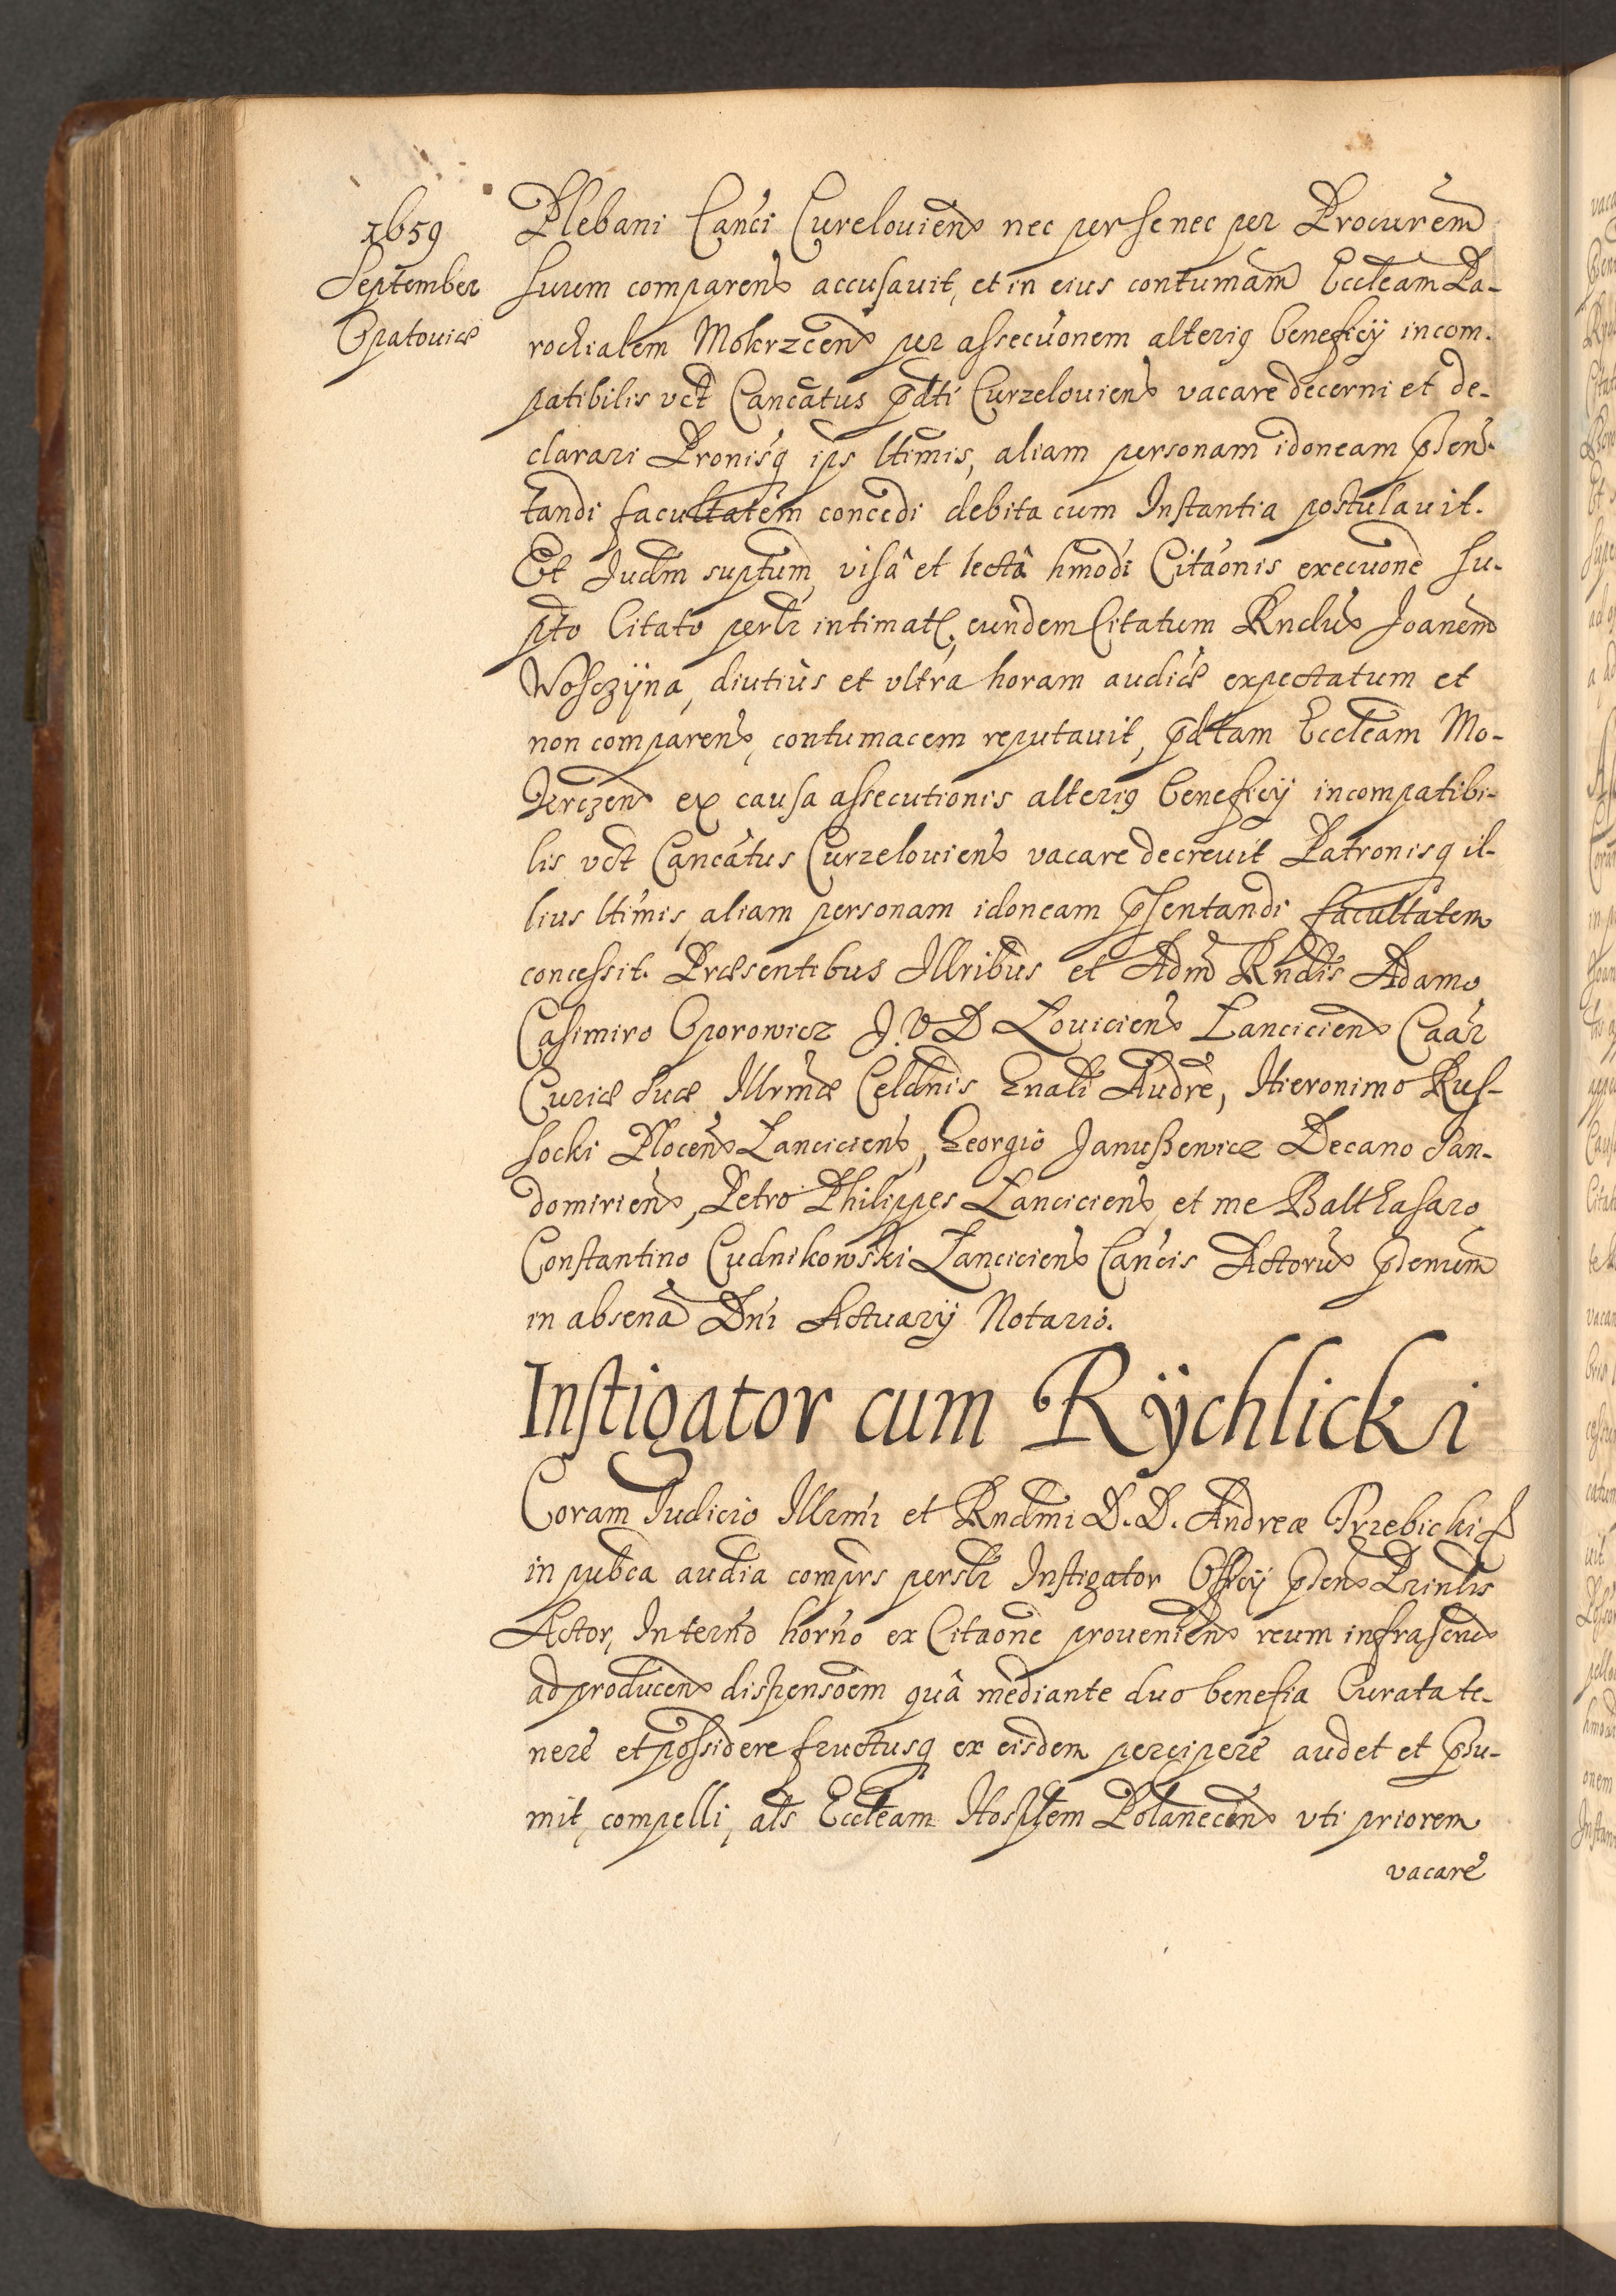 1659
September
Opatoviæ
Plebani Canci Cureloviens nec per se nec per Procurem
suum comparens accusavit, et in eius contumam Eccleam Pa-
rochialem Mokrzcens per assecuonem alterius beneficÿ incom-
patibilis vct Cancatus pdti Curzeloviens vacare decerni et de-
clarari Pronisq ips ltimis, aliam personam idoneam psen-
tandi facultatem concedi debita cum Instantia postulavit.
Et Judm suptum visâ et lectâ hmodi Citaonis execuone su-
pto Citato perlr intimat, eundem Citatum Rndus Joanem
Wosczÿna, diutius et ultra horam audiæ expectatum et
non comparens, contumacem reputavit, pdtam Eccleam Mo-
krczens ex causa assecutionis alterius beneficÿ incompatibi-
lis vct Cancatus Curzeloviens vacare decrevit Patronisq il-
lius ltimis aliam personam idoneam psentandi facultatem
concessit. Præsentibus Illribus et Adm Rndis Adamo
Casimiro Oporowicz J.V.D Loviciens Lanciciens Caar
Curiæ Suæ Illrmæ Celdnis Gnali Audre, Hieronimo Rus-
socki Plocens Lanciciens, Georgio Janußewicz Decano San-
domiriens, Petro Philippes Lanciciens et me Balthasaro
Constantino Cudnikowski Lanciciens Cancis Actorus psenum
in absena Dni Actuarÿ Notario.
Instigator cum Rÿchlicki
Coram Judicio Illrmi et Rndmi D. D. Andreæ Trzebicki
in pubca audia comprs perslr Instigator Officÿ psens Prinlis
Actor, In terno horno ex Citaone proveniens reum infrascrus
ad producens dispensoem quâ mediante duo benefia Curata te-
nere et possidere fructusq ex eisdem percipere audet et psu-
mit, compelli, als Eccleam Hosplem Polanecens uti priorem
vacare